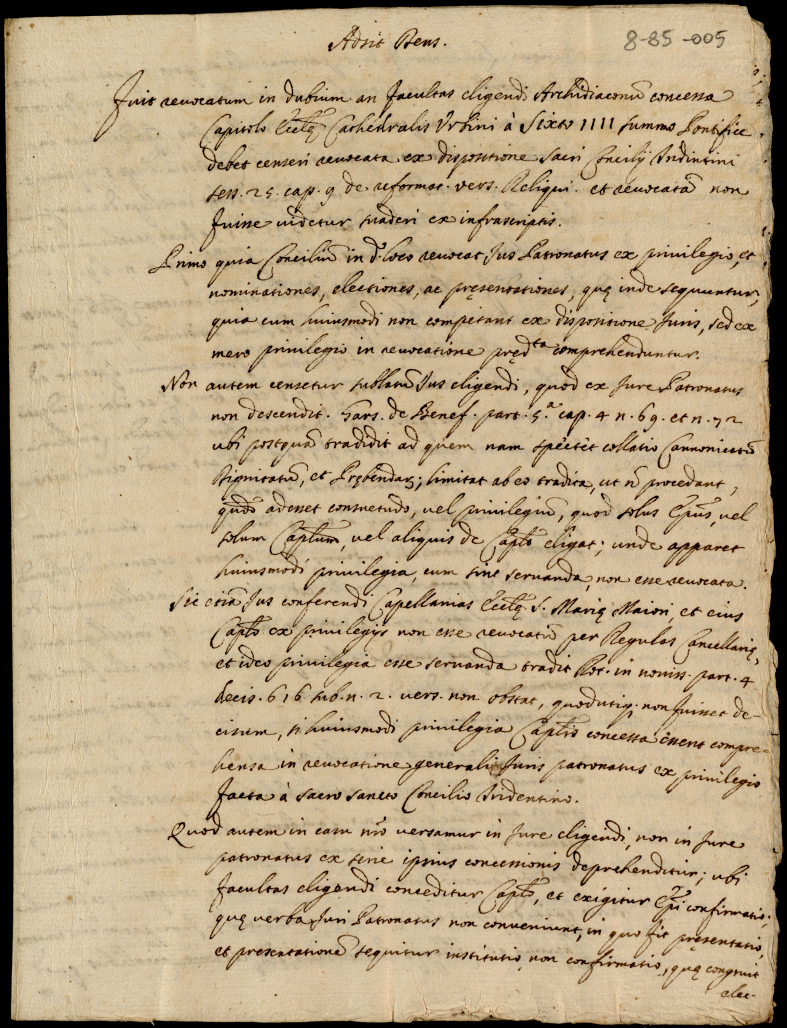 Adsit Deus.
8-85-005
Fuit revocatum in dubium an facultas eligendi Archidiaconũ concessa
Capitolo Eccl̃ę Cathedralis Urbini à Sixto IIII summo Pontifice
debet censeri revocata ex dispositione sacri Concilij Tridintini
sess. 25. cap. 9 de reformat. vers. Reliqui. et revocatã non
fuisse videtur suaderi ex infrascriptis.
Primo quia Conciliũ in dº. loco revocat Jus Patronatus ex privilegio, et
nominationes, electiones, ac pręsentationes, quę inde sequuntur,
quia cum huiusmodi non competant ex dispositione Juris, sed ex
mero privilegio in revocatione pręd.ta comprehenduntur.
Non autem censetur sublatũ Jus eligendi, quod ex Jure Patronatus
non descendit. Gars. de Benef. part. 5.a cap. 4 n. 69. et n. 72
ubi postquã tradidit ad quem nam spectet collatio Cannonicatũ
Dignitatũ, et Prębendarꝫ; limitat ab eo tradita, ut nõ procedant,
quõ adesset consuetudo, vel privilegiũ, quod solus Epũs, vel
solum Capłum, vel aliquis de Capło eligat; unde apparet
huiusmodi privilegia, cum sint servanda, non esse revocata.
Sic etiã Jus conferendi Capellanias Eccl̃ę S. Marię Maiori, et eius
Capło ex privilegijs non esse revocatũ per Regulas Cancellarię,
et ideo privilegia esse servanda tradit Rot. in noviss. part. 4
decis. 616 sub. n. 2. vers. non obstat, quod utiq. non fuisset de-
cisum, si huiusmodi privilegia Capłis concessa essent compre-
hensa in revocatione generali Juris patronatus ex privilegio
facta à sacro sancto Concilio Tridentino.
Quod autem in casu nrõ versamur in Jure eligendi, non in Jure
patronatus ex serie ipsius concessionis deprehenditur; ubi
facultas eligendi conceditur Capło, et exigitur Epĩ confirmatio;
quę verba Juri Patronatus non conveniunt, in quo fit pręsentatio,
et presentationẽ sequitur institutio, non confirmatio, quę congruit
elec-